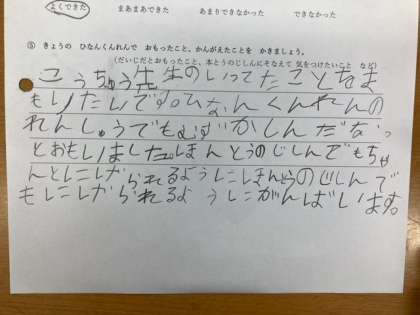 よくできた まあまあできた あまりできなかった できなかった
⑤ きょうの ひなんくんれんで おもったこと、かんがえたことを かきましょう。
(だいじだとおもったこと、本とうのじしんにそなえて 気をつけたいこと など)
こうちゅう先生のいってたことをま
もりたいです。ひなんくんれんの
れんしゅうでもむずかしんだなっ
とおもいました。ほんとうのじしんでもちゃ
んとにげられるようにほんとうのじしんで
もにげられるようにがんばります。